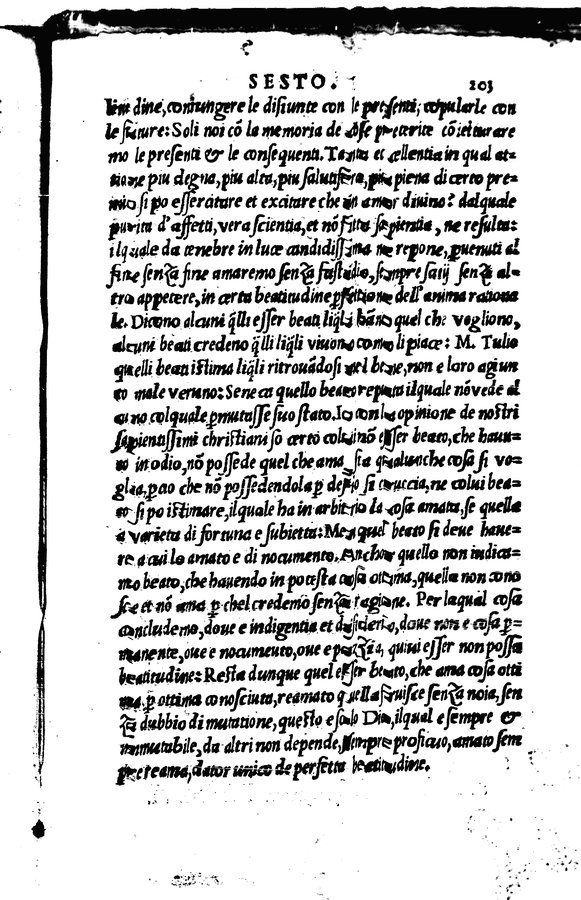 SESTO. 203
dine, coniungere le disiunte con le presenti, copularle con
le future: Soli noi cō la memoria de cose preterite cōietturare
mo le presenti & le consequenti. Tanta et cellentia in qual at=
tione piu degna, piu alta, piu salutifera, piu piena di certo pre=
mio si po essercitare et excitare che in amor diuino? dal quale
purita d'affetti, vera scientia, et nō fitta sapientia, ne resulta:
il quale da tenebre in luce candidissima ne repone, ꝑuenuti al
fine senza fine amaremo senza fastidio, sempre saij senza al=
tro appetere, in certa beatitudine ꝑfettione dell'anima rationa
le. Dicono alcuni q̄lli esser beati liq̄li hāno quel che vogliono,
alcuni beati credeno q̄lli liq̄li viuono como li piace: M. Tulio
quelli beati istima liq̄li ritrouādosi nel bene, non e loro agiun
to male veruno: Seneca quello beato reputa il quale nō vede al
cuno col quale ꝑmutasse suo stato. Io con la opinione de nostri
sapientissimi christiani so certo colui nō esser beato, che hauu=
to in odio, nō possede quel che ama, sia qualunche cosa si vo=
glia, ꝑao che nō possedendola ꝑ desio si coruccia, ne colui bea=
to si po istimare, il quale ha in arbitrio la cosa amata, se quella
a varieta di fortuna e subietta: Men quel beato si deue haue=
re a cui lo amato e di nocumento. Anchor quello non indica=
mo beato, che hauendo in potesta cosa ottima, quella non cono
sce et nō ama ꝑ chel credemo senza ragione. Per laqual cosa
concludemo, doue e indigentia et desiderio, doue non e cosa ꝑ=
manente, oue e nocumento, oue e pazzia, quiui esser non possa
beatitudine: Resta dunque quel esser beato, che ama cosa otti
ma, ꝑ ottima conosciuta, reamato quella fruisce senza noia, sen
za dubbio di mutatione, questo e solo Dio, il qual e sempre &
immutabile, da altri non depende, sempre proficuo, amato sem
pre reama, dator unico de perfetta beatitudine.